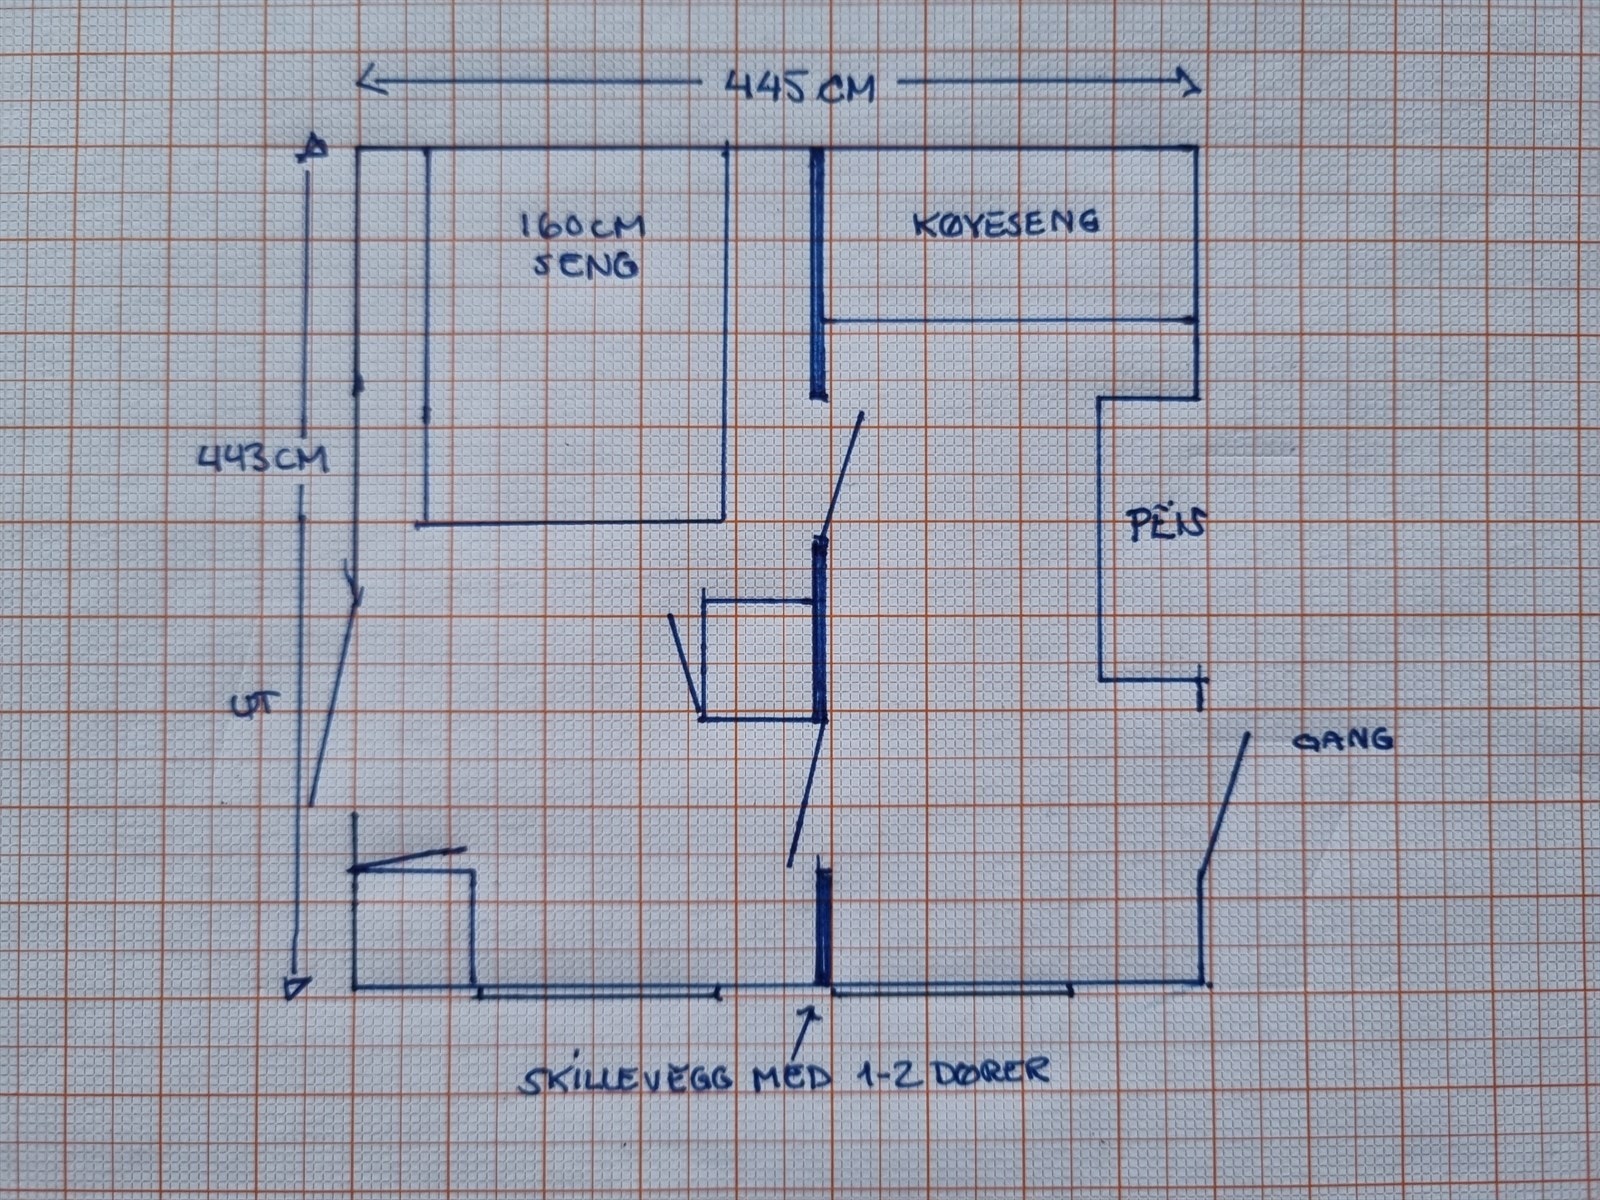 445 CM
160 CM
SENG
KØYESENG
443 CM
PEIS
UT
GANG
SKILLEVEGG MED 1-2 DØRER